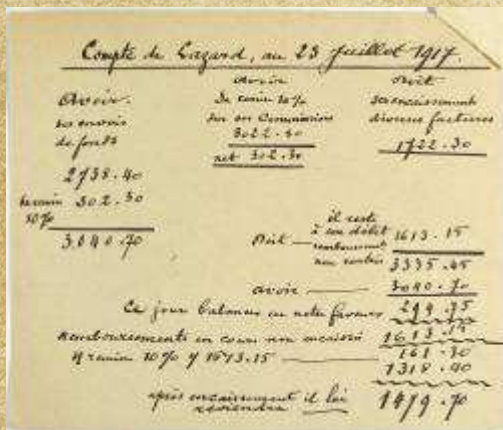 Compte de Lazard, au 23 Juillet 1917.
Avoir.
ses envois
de fonds
2738.40
remise 302.30
10%
3040.70
Avoir
De remise 10%
sur ses Commissions
3022.80
net 302.30
Doit
ses encaissements
diverses factures
1722.30
il reste
Doit — à son débit 1613.15
remboursement
non rentrés 3335.45
avoir — 3040.70
Ce jour balance en notre faveur 294.75
Remboursements en cours non encaissés 1613.15
remise 10% 1613.15 — 161.30
1318.40
après encaissement il lui
reviendra 1479.70